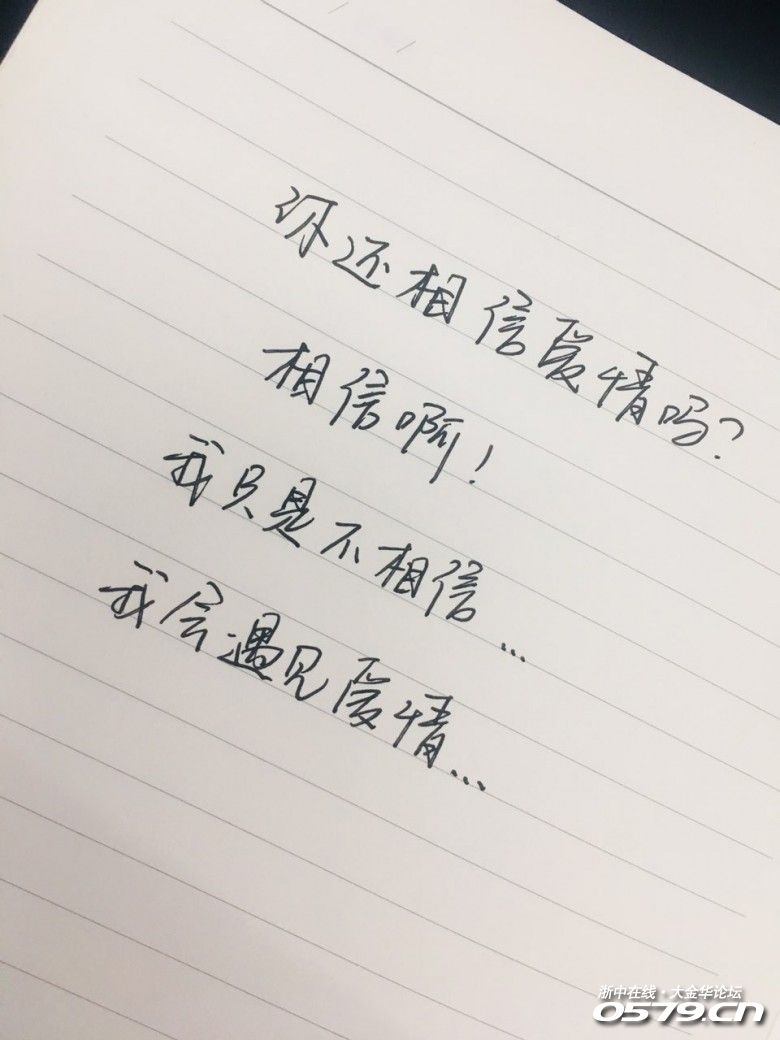 你还相信爱情吗?
相信啊!
我只是不相信...
我会遇见爱情...
浙中在线·大金华论坛
0579.cn